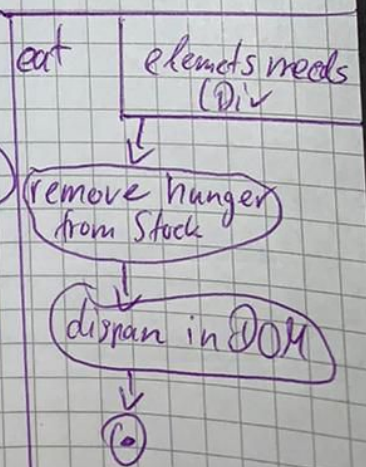 eat
elemets needs
(Div
remove hunger
from Stock
in DOM